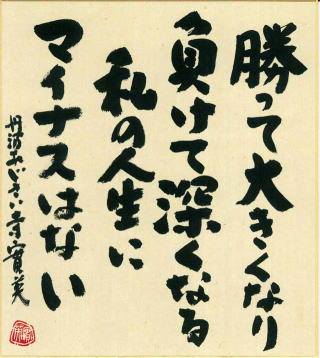 勝って大きくなり
負けて深くなる
私の人生に
マイナスはない
丹波あじさい寺實英